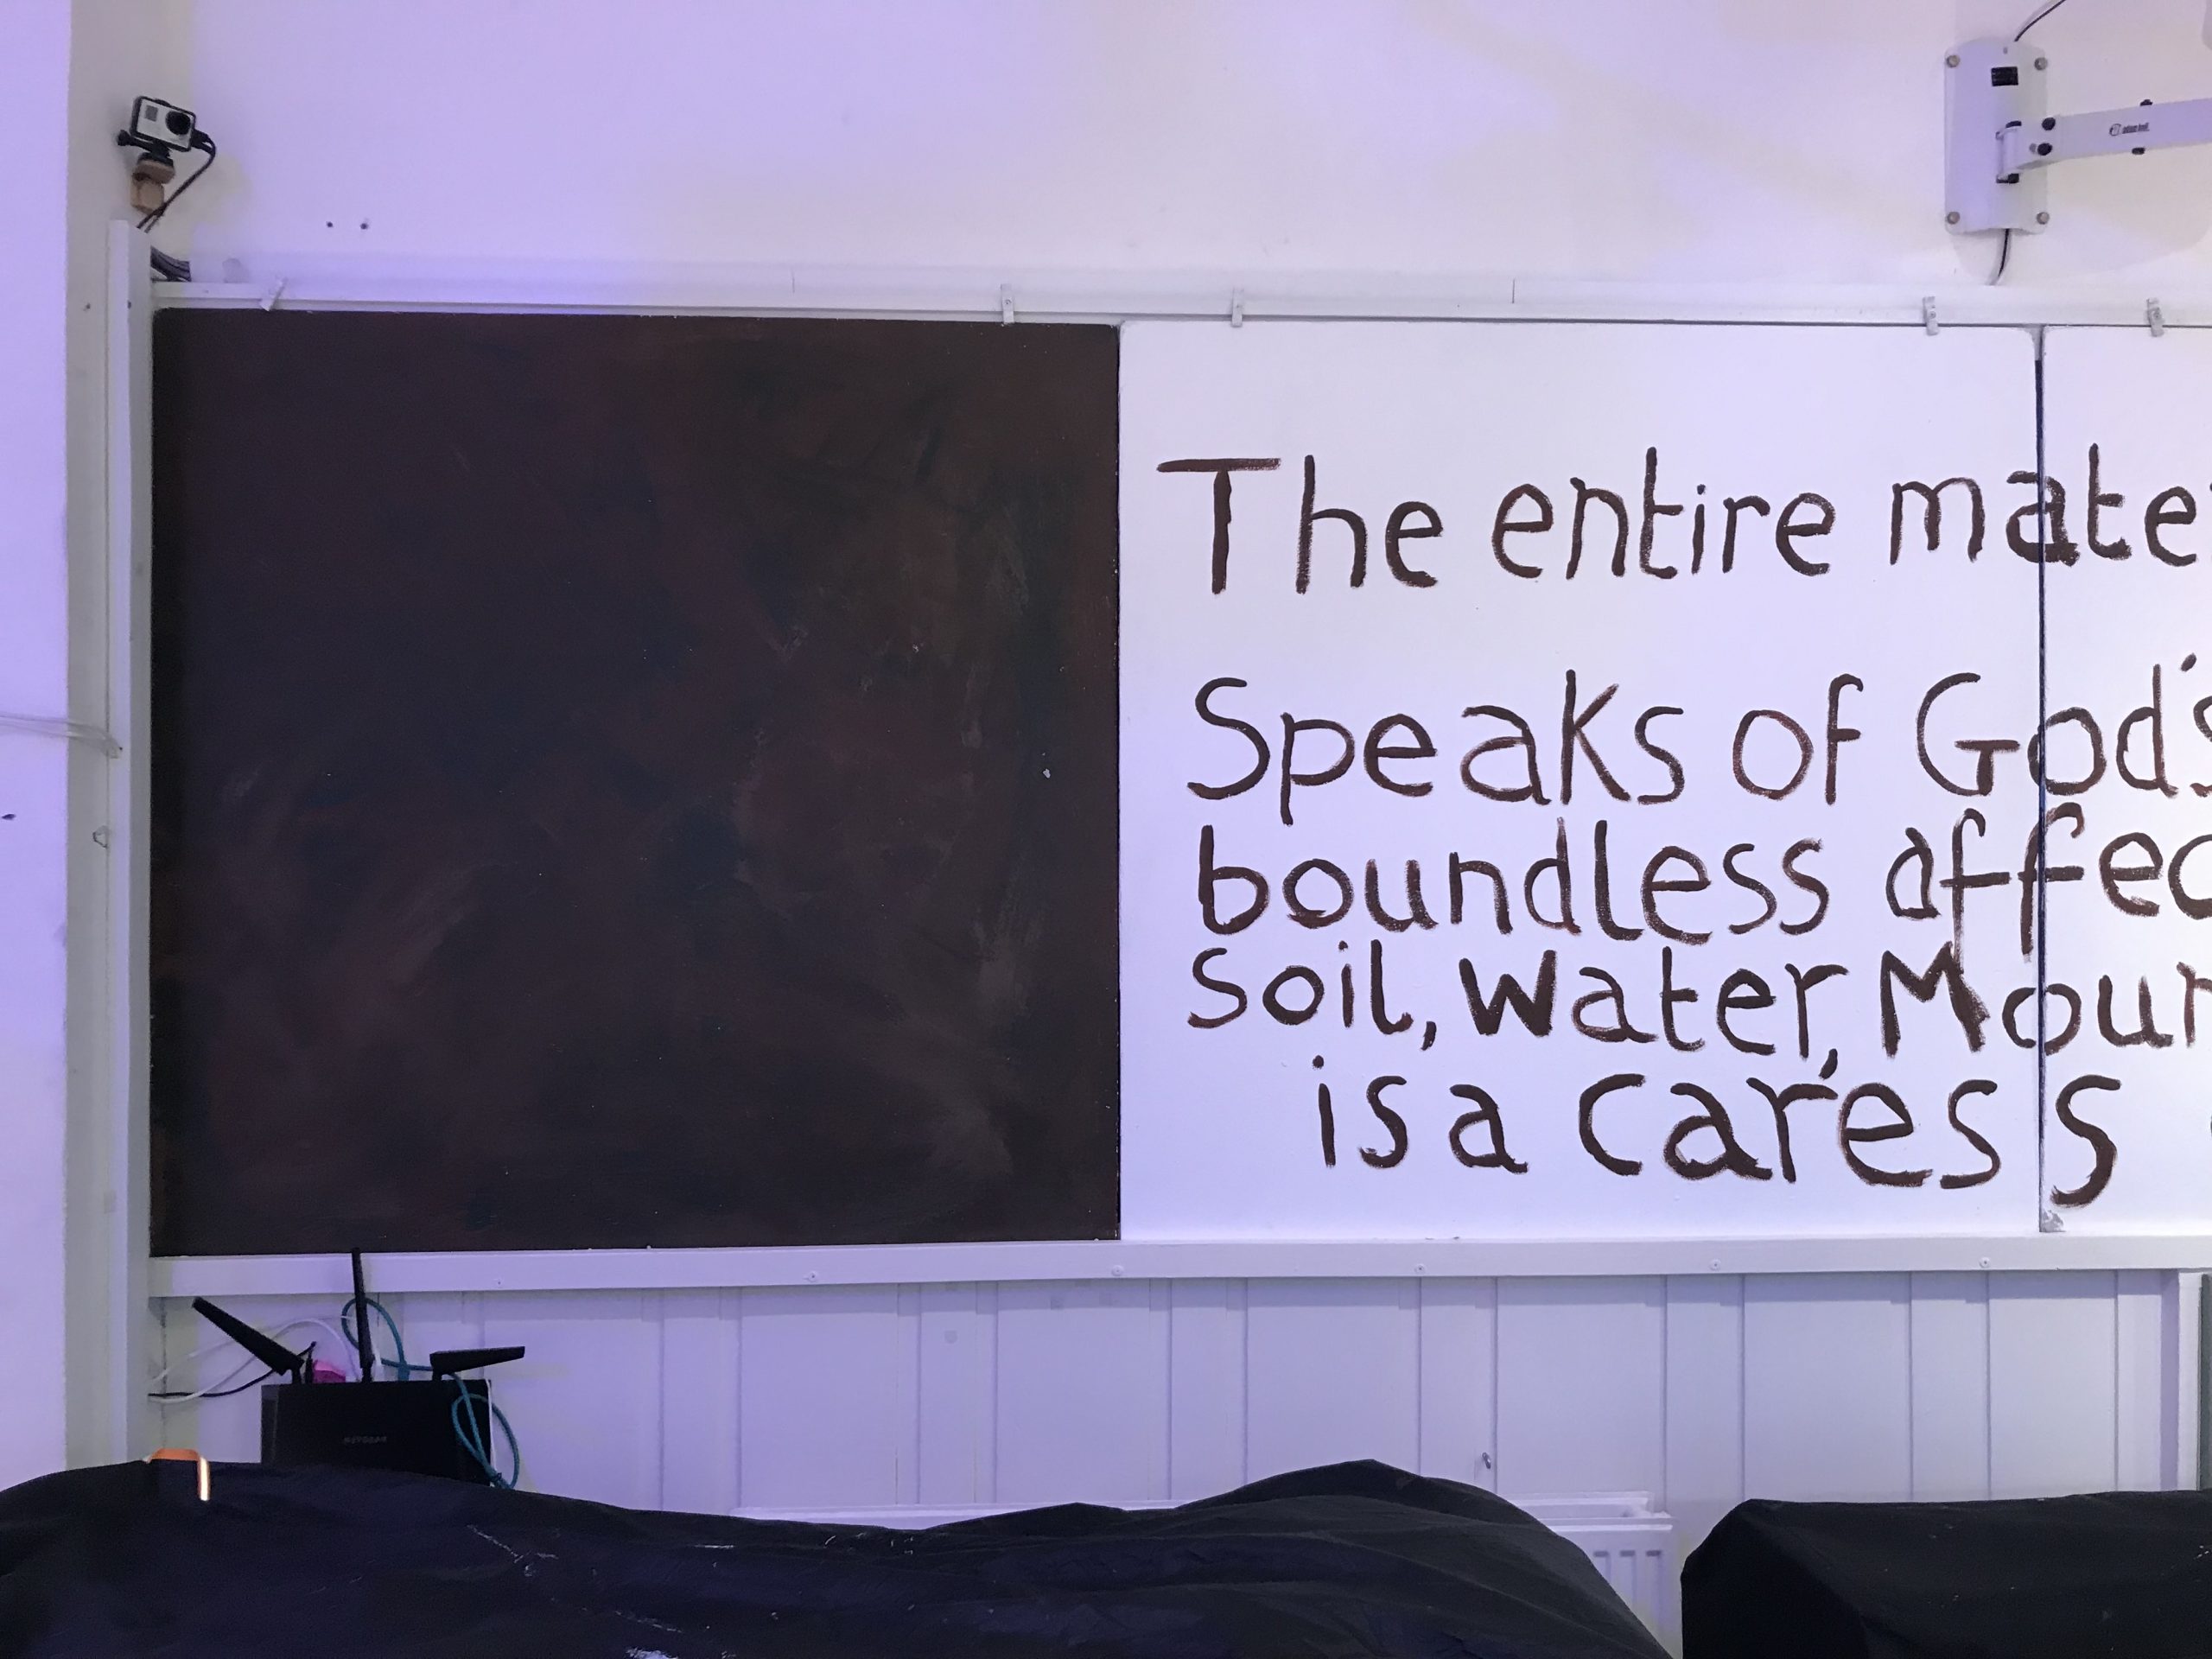 The entire mate
Speaks of God's
boundless affec
Soil, Water, Moun
is a caress
NETGEAR